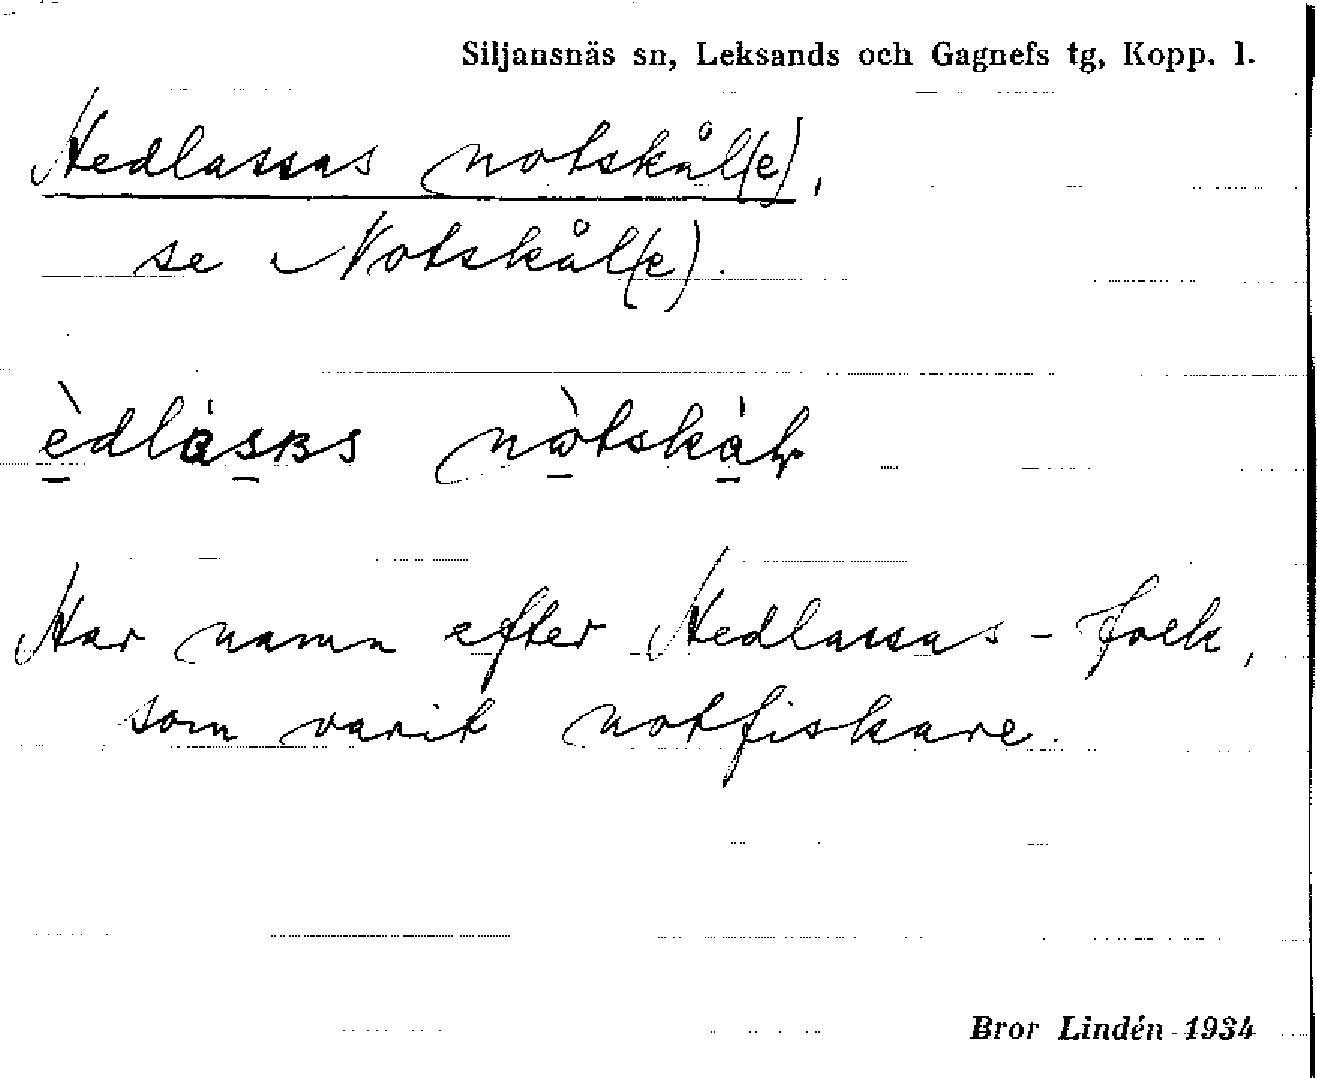 Siljansnäs sn, Leksands och Gagnefs tg, Kopp. l.
Hedlassas notskål(e),
se Notskål(e).
Har namn efter Hedlassas-folk,
som varit notfiskare.
Bror Lindén 1934